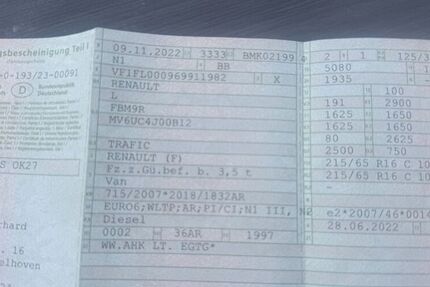 gsbescheinigung Teil I
0-193/23-00091
D Bundesrepublik Deutschland
S OK27
hard
. 16
elhoven
09.11.2022 3333 BMK02199
N1 BB
VF1FL000969911982 X
RENAULT
L
FBM9R
MV6UC4J00B12
TRAFIC
RENAULT (F)
Fz.z.Gü.bef. b. 3,5 t
Van
715/2007*2018/1832AR
EURO6;WLTP;AR;PI/CI;N1 III, N2
Diesel
0002 36AR 1997
WW.AHK LT. EGTG*
2 1 125/3
5080
1935 -
100
191 2900
1625 1650
1625 1650
80 2625
2500 750
215/65 R16 C 10
215/65 R16 C 10
-
e2*2007/46*0014
28.06.2022